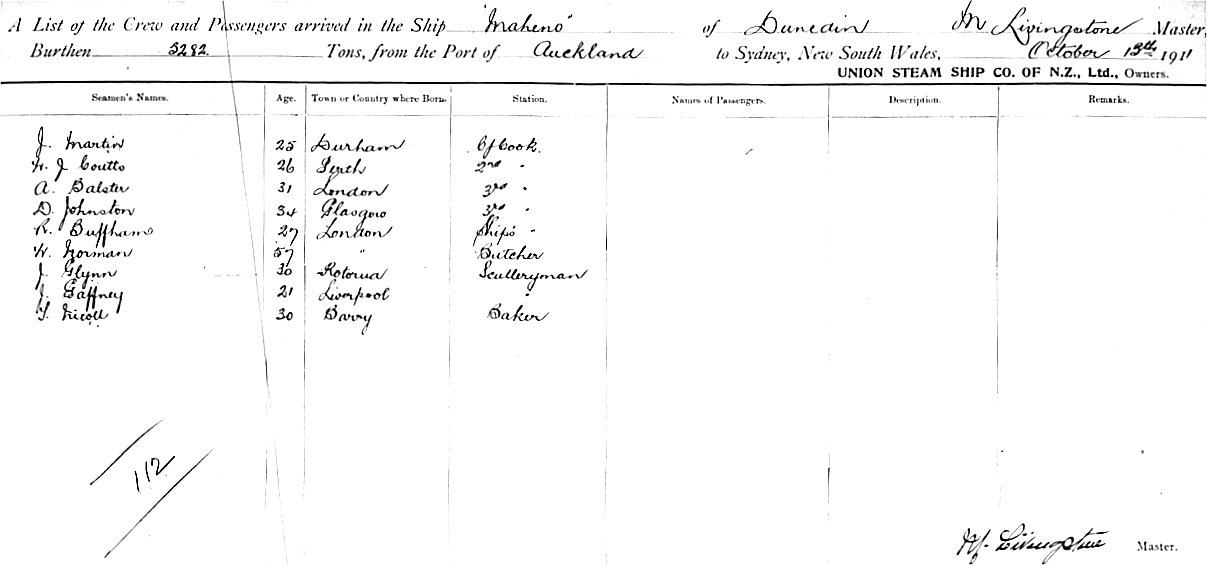 A List of the Crew and Passengers arrived in the Ship "Maheno" of Dunedin M Livingstone Master,
Burthen 5282 Tons, from the Port of Auckland to Sydney, New South Wales, October 13th 1911
UNION STEAM SHIP CO. OF N.Z., Ltd., Owners.
Seamen's Names. Age. Town or Country where Born. Station. Names of Passengers. Description. Remarks.
J. Martin 25 Durham Cf Cook.
W. J Coutts 26 Perth 2nd "
A. Balster 31 London 3rd "
D. Johnston 34 Glasgow 3rd "
R. Buffham 27 London Ship's "
W. Norman 57 " Butcher
J. Glynn 30 Rotorua Sculleryman
J. Gaffney 21 Liverpool "
T. Nicoll 30 Barry Baker
112
M. Livingstone Master.